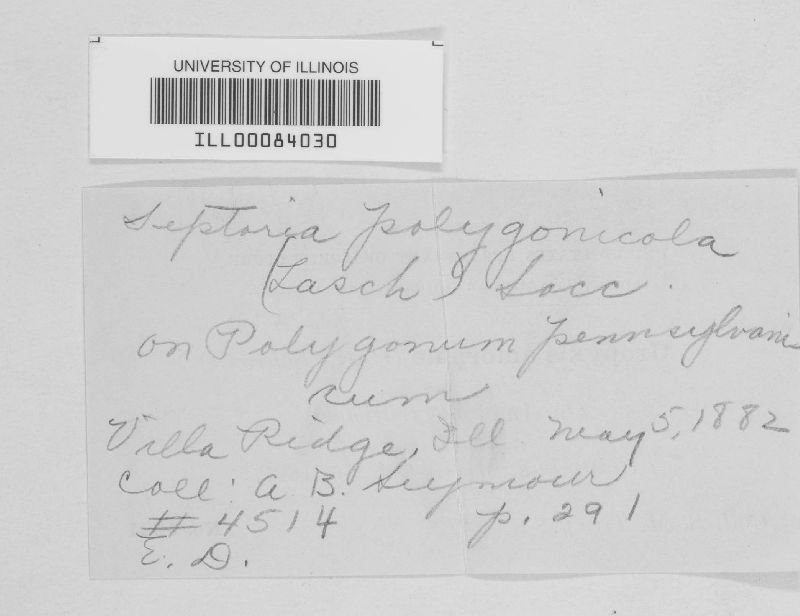 UNIVERSITY OF ILLINOIS
ILL00084030
Septoria polygonicola
(Lasch) Sacc.
on Polygonum pennsylvani
cum
Villa Ridge, Ill. May 5, 1882
Coll: A. B. Seymour
# 4514 p. 291
E. D.